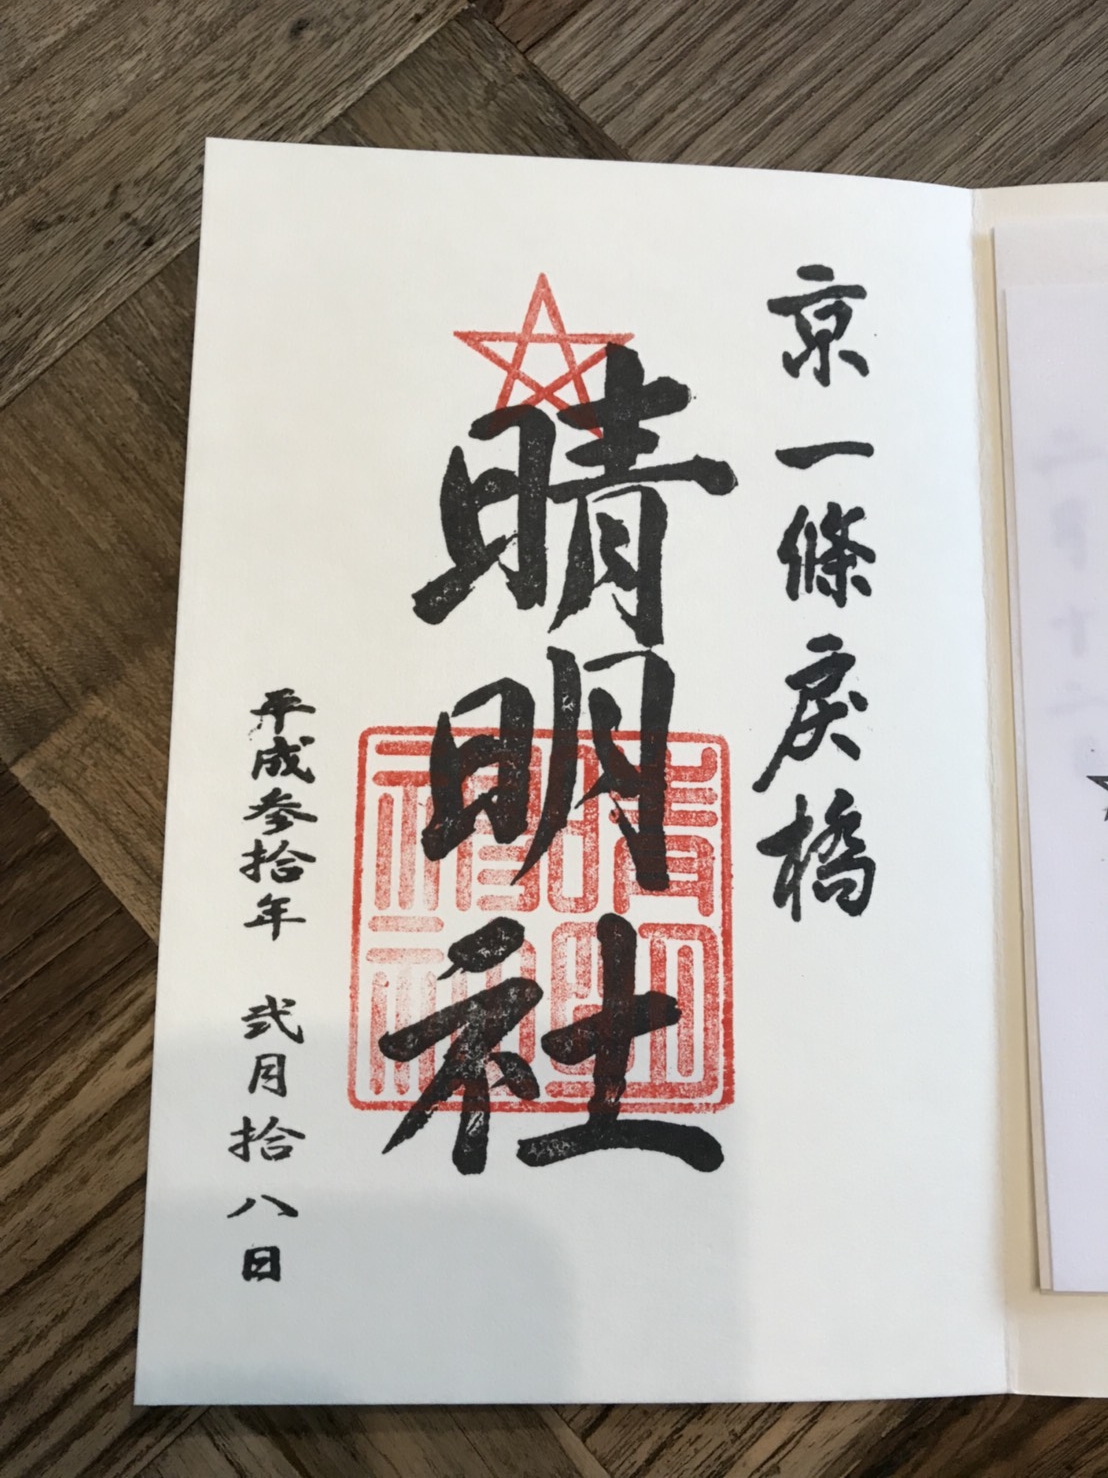 京一條戻橋
晴明社
晴明神社
平成参拾年 弐月拾八日